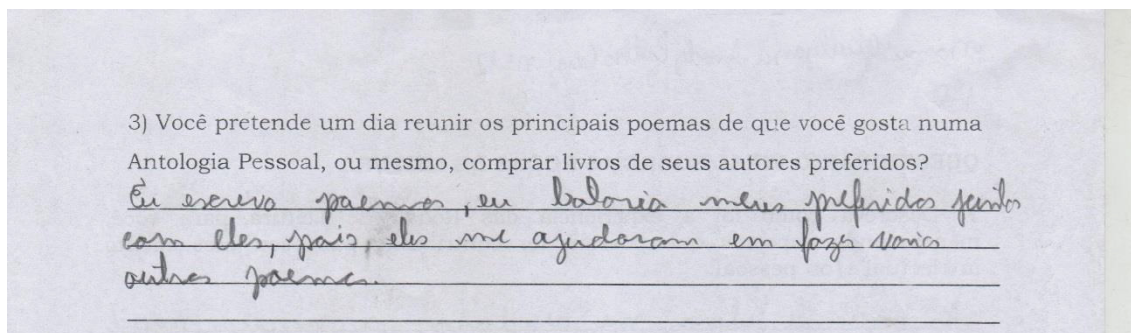 3) Você pretende um dia reunir os principais poemas de que você gosta numa
Antologia Pessoal, ou mesmo, comprar livros de seus autores preferidos?
Eu escrevo poemas, eu botaria meus preferidos juntos
com eles, pois, eles me ajudaram em fazer varios
outros poemas.